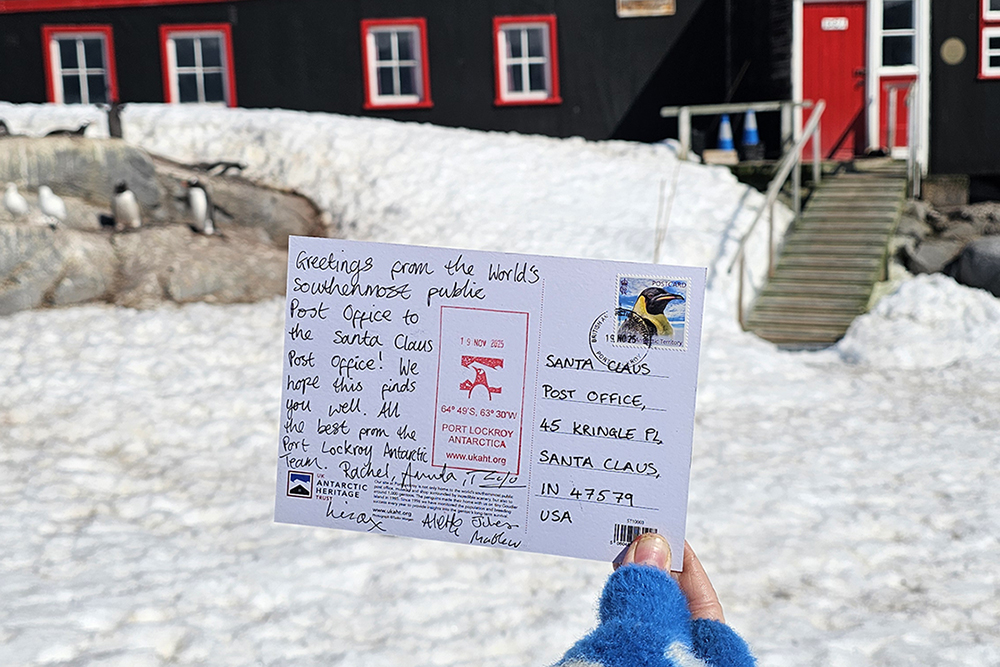 Greetings from the World's
southernmost public
Post Office to
the Santa Claus
Post Office! We
hope this finds
you well. All
the best from the
Port Lockroy Antarctic
Team. Rachel,
19 NOV 2025
64° 49'S, 63° 30'W
PORT LOCKROY
ANTARCTICA
www.ukaht.org
UK
ANTARCTIC
HERITAGE
TRUST
www.ukaht.org
Aletta Jules
POSTCARD
Territory
PORT LOCKROY
SANTA CLAUS
POST OFFICE,
45 KRINGLE PL,
SANTA CLAUS,
IN 47579
USA